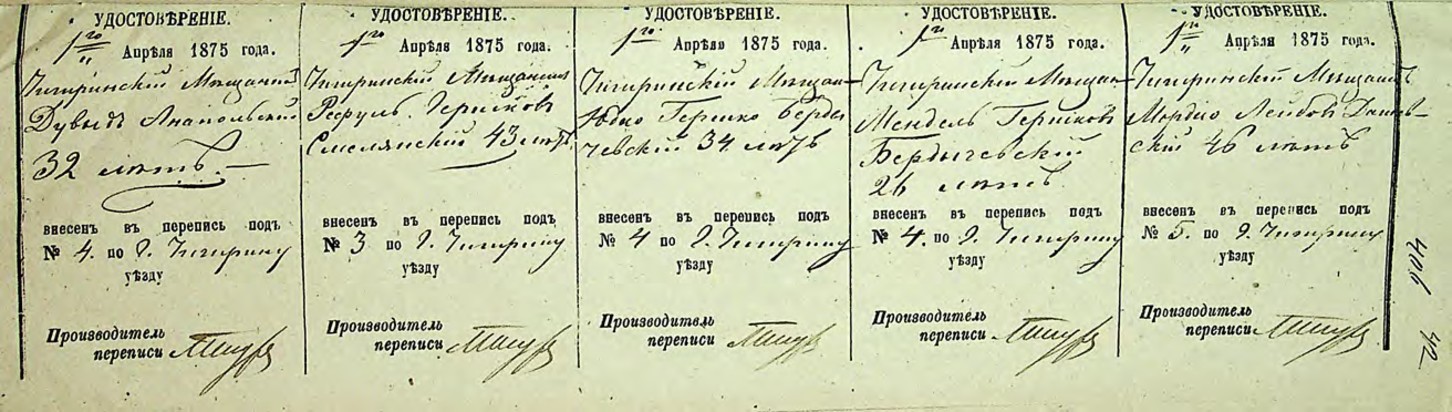 УДОСТОВѢРЕНІЕ.
1го Апрѣля 1875 года.
Чигиринскій Мѣщанинъ
Дувыдъ Анапольскій
32 лѣтъ
внесенъ въ перепись подъ
№ 4. по г. Чигирину
уѣзду
Производитель
переписи
УДОСТОВѢРЕНІЕ.
1го Апрѣля 1875 года.
Чигиринскій Мѣщанинъ
Гершковъ
Смелянскій 43 лѣтъ
внесенъ въ перепись подъ
№ 3 по г. Чигирину
уѣзду
Производитель
переписи
УДОСТОВѢРЕНІЕ.
1го Апрѣля 1875 года.
Чигиринскій Мѣщан-
Юдко Гершко Берды
чевскій 34 лѣтъ
внесенъ въ перепись подъ
№ 4 по г. Чигирину
уѣзду
Производитель
переписи
УДОСТОВѢРЕНІЕ.
1го Апрѣля 1875 года.
Чигиринскій Мѣщан-
Мендель Гершковъ
Бердычевскій
26 лѣтъ
внесенъ въ перепись подъ
№ 4. по г. Чигирину
уѣзду
Производитель
переписи
УДОСТОВѢРЕНІЕ.
1го Апрѣля 1875 года.
Чигиринскій Мѣщанинъ
Мордко Лейбовъ
скій 46 лѣтъ
внесенъ въ перепись подъ
№ 5. по г. Чигирину
уѣзду
Производитель
переписи
406
42